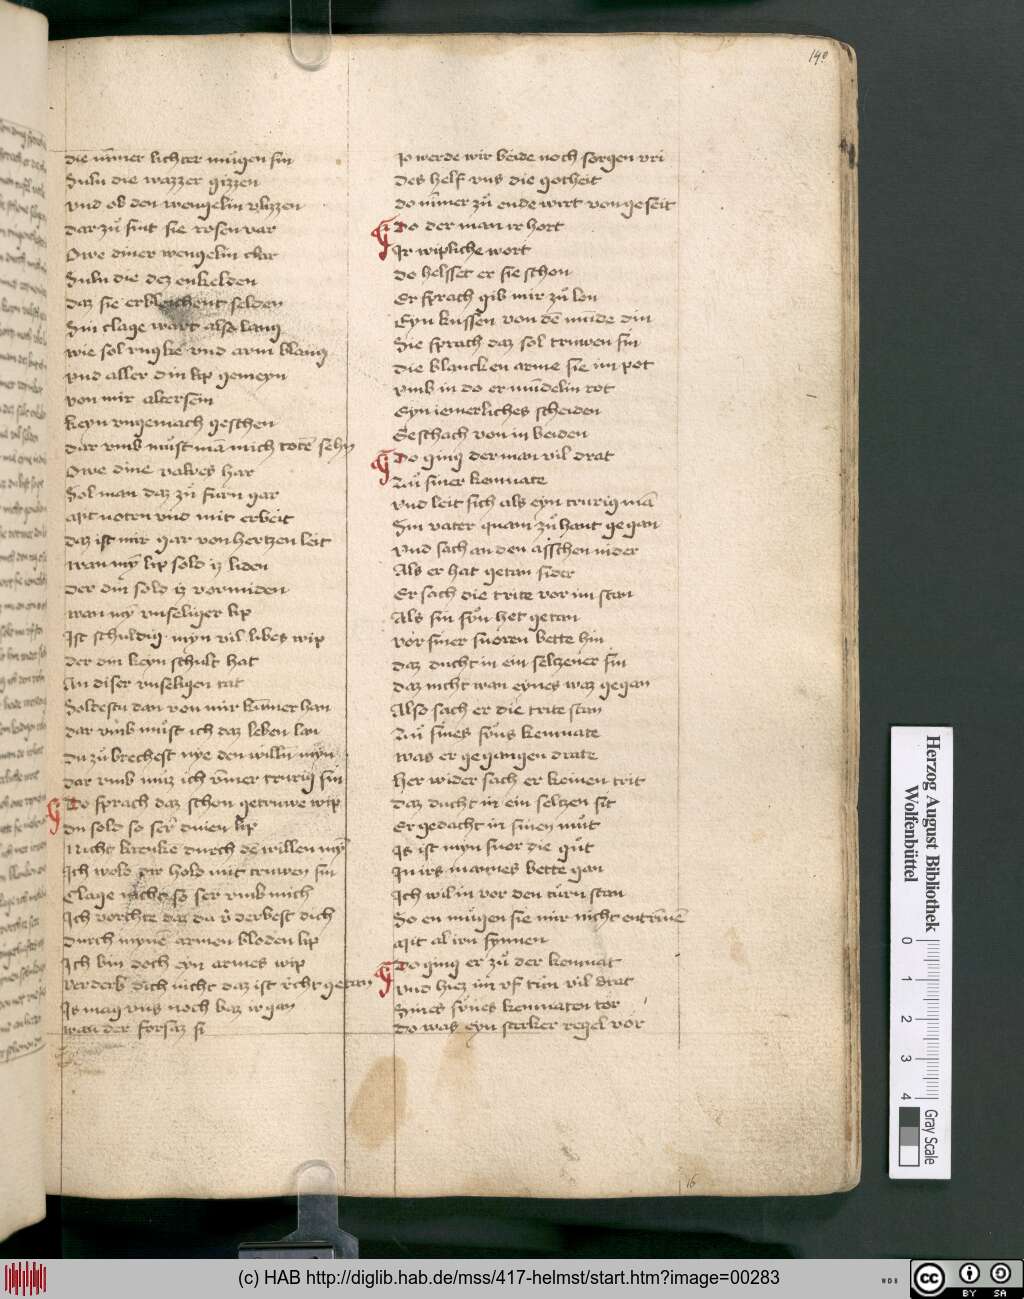 140
die nīmer lichter mügen sin
Suln die wazzer gizzen
vnd ob den wengelin vlizzen
dar zů sint sie rosen var
Owe diner wengelin clar
Suln die dez enkelden
daz sie erbleichent selden
Sin clage wart also lang
wie sol rugke vnd arm blang
vnd aller din lip gemeyn
von mir altersein
keyn vngemach geschen
dar vmb můst mā mich totē sehn
Owe dine valwes har
Sol man daz zů furn gar
mit noten vnd mit erbeit
daz ist mir gar von hertzen leit
wan mȳ lip sold iz liden
der din sold iz vormiden
wan mȳ vnseliger lip
Ist schuldig myn vil libes wip
der din keyn schult hat
An diser vnseligen tat
Soltestu dan von mir kūmer han
dar vmb můst ich daz leben lan
du zů brechest nye den willn myn
dar vmb můz ich ūmer trurig sin
Do sprach daz schon getruwe wip
du sold so ser dinen lip
Nicht krenke durch dē willen mȳ
Ich wold dir hold mit truwen sin
Clage nicht so ser vmb mich
Ich vorchte daz du v̄derbest dich
durch mynē armen bloden lip
Ich bin doch eyn armes wip
verderb dich nicht daz ist v̄cht getan
Is mag vns noch baz irgan
wan der forsaz si
Jo werde wir beide noch sorgen vri
des helf vns die gotheit
do nīmer zů ende wirt von geseit
Do der man ir hort
Ir wipliche wort
do helsset er sie schon
Er sprach gib mir zů lon
Eyn kussen von dē munde din
Sie sprach daz sol truwen sin
die blancken arme sie im pot
vmb in do er mūdelin rot
Eyn iemerliches scheiden
Geschach von in beiden
Do ging der man vil drat
Zů siner kemnate
vnd leit sich als eyn trurig mā
Sin vater quam zů hant gegan
vnd sach an den asschen nider
Als er hat getan sider
Er sach die trite vor im stan
Als sin sůn het getan
vor siner snoren bette hin
daz ducht in ein seltzener sin
daz nicht wan eynes waz gegan
Also sach er die trite stan
Zů sines sůns kemnate
was er gegangen drate
her wider sach er keinen trit
daz ducht in ein seltzen sit
Er gedacht in sinen můt
Is ist myn snor die gůt
In irs mannes bette gan
Ich wil in vor den turn stan
So en mügen sie mir nicht entrīnē
Mit al irn synnen
Do ging er zů der kemnat
vnd hiez im vf tun vil drat
Sines sůnes kemnaten tor
do was eyn starker regel vor
16
Herzog August Bibliothek
Wolfenbüttel
0 1 2 3 4
Gray Scale
(c) HAB http://diglib.hab.de/mss/417-helmst/start.htm?image=00283
WDB
cc BY SA